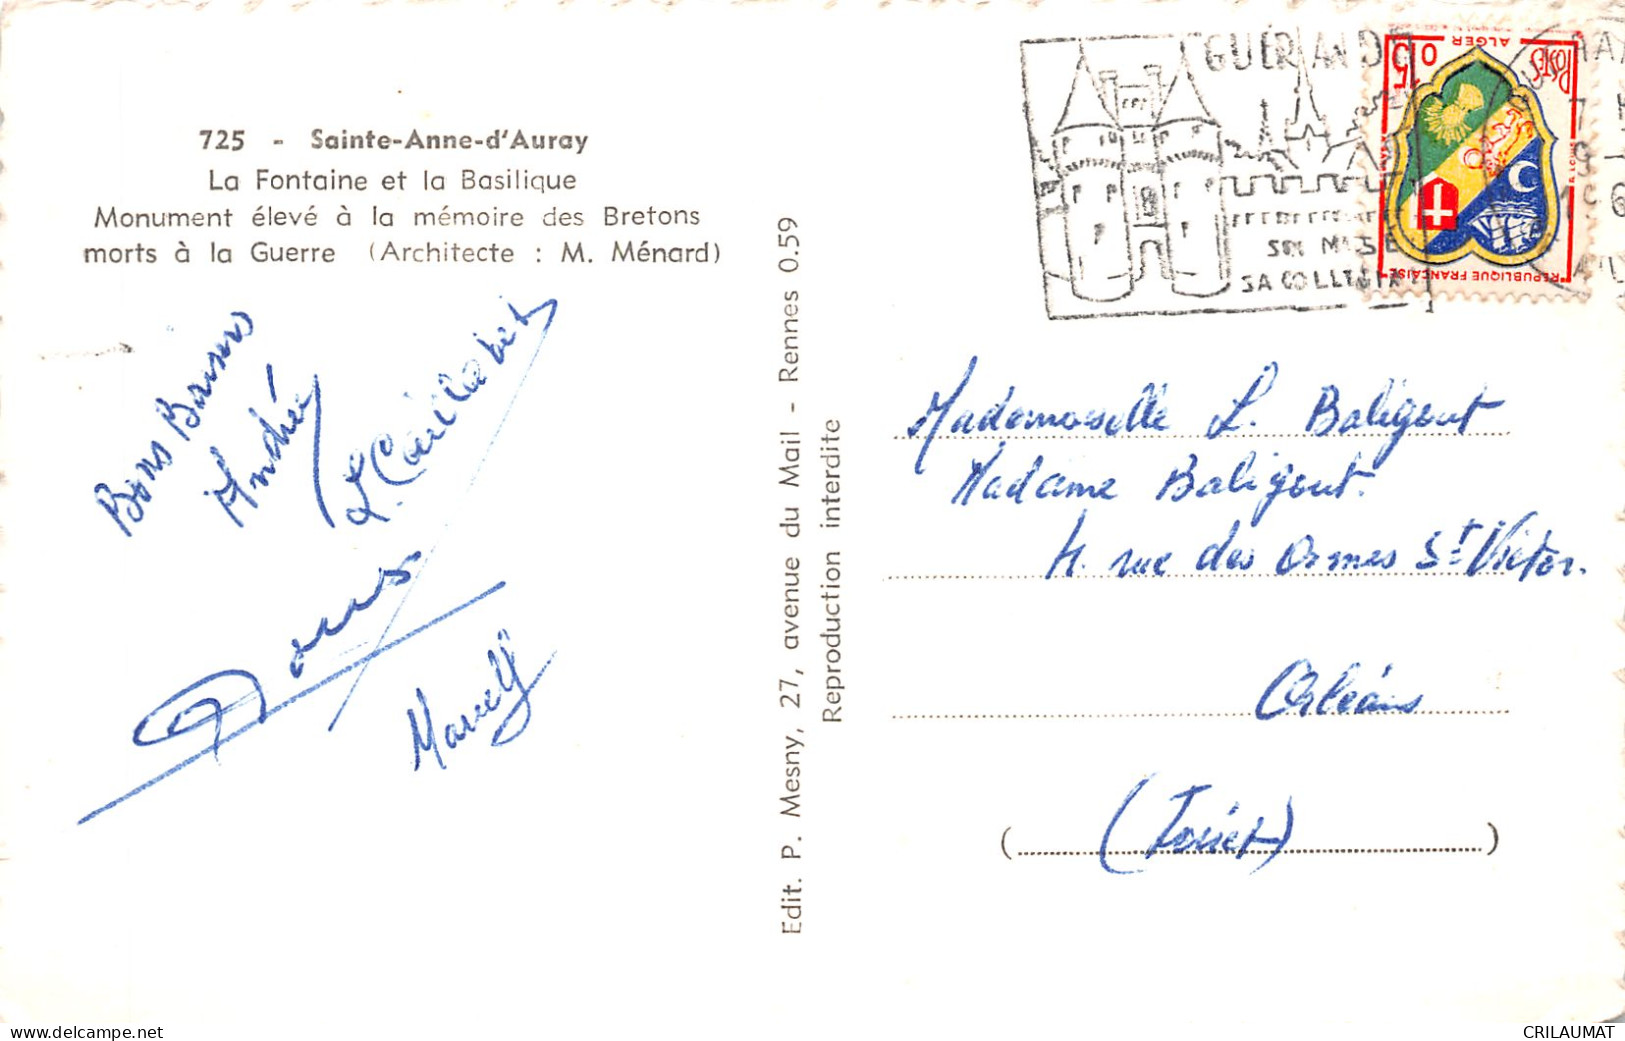 725 - Sainte-Anne-d'Auray
La Fontaine et la Basilique
Monument élevé à la mémoire des Bretons
morts à la Guerre (Architecte : M. Ménard)
Bons Baisers
Andrée
Edit. P. Mesny, 27, avenue du Mail - Rennes 0.59
Reproduction interdite
GUÉRANDE
SA COLLEGIALE
0 15
ALGER
POSTES
REPUBLIQUE FRANÇAISE
Mademoiselle L. Baligout
Madame Baligout.
4. rue des Ormes St Victor.
Orléans
(Loiret)
www.delcampe.net
CRILAUMAT